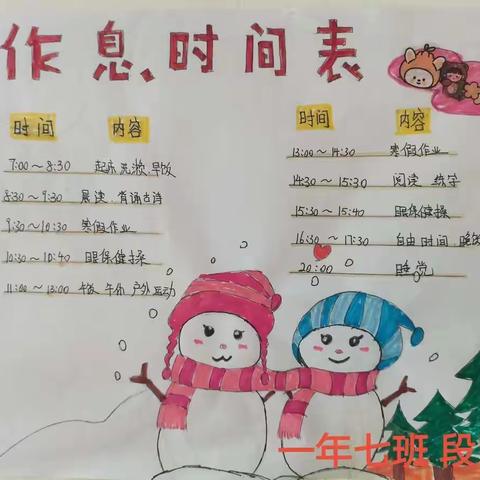 作息时间表
时间 内容
7:00～8:30 起床 洗漱 早饭
8:30～9:30 晨读、背诵古诗
9:30～10:30 寒假作业
10:30～10:40 眼保健操
11:00～13:00 午饭 午休 户外运动
时间 内容
13:00～14:30 寒假作业
14:30～15:30 阅读 练字
15:30～15:40 眼保健操
16:30～17:30 自由时间、晚饭
20:00 睡觉
一年七班 段